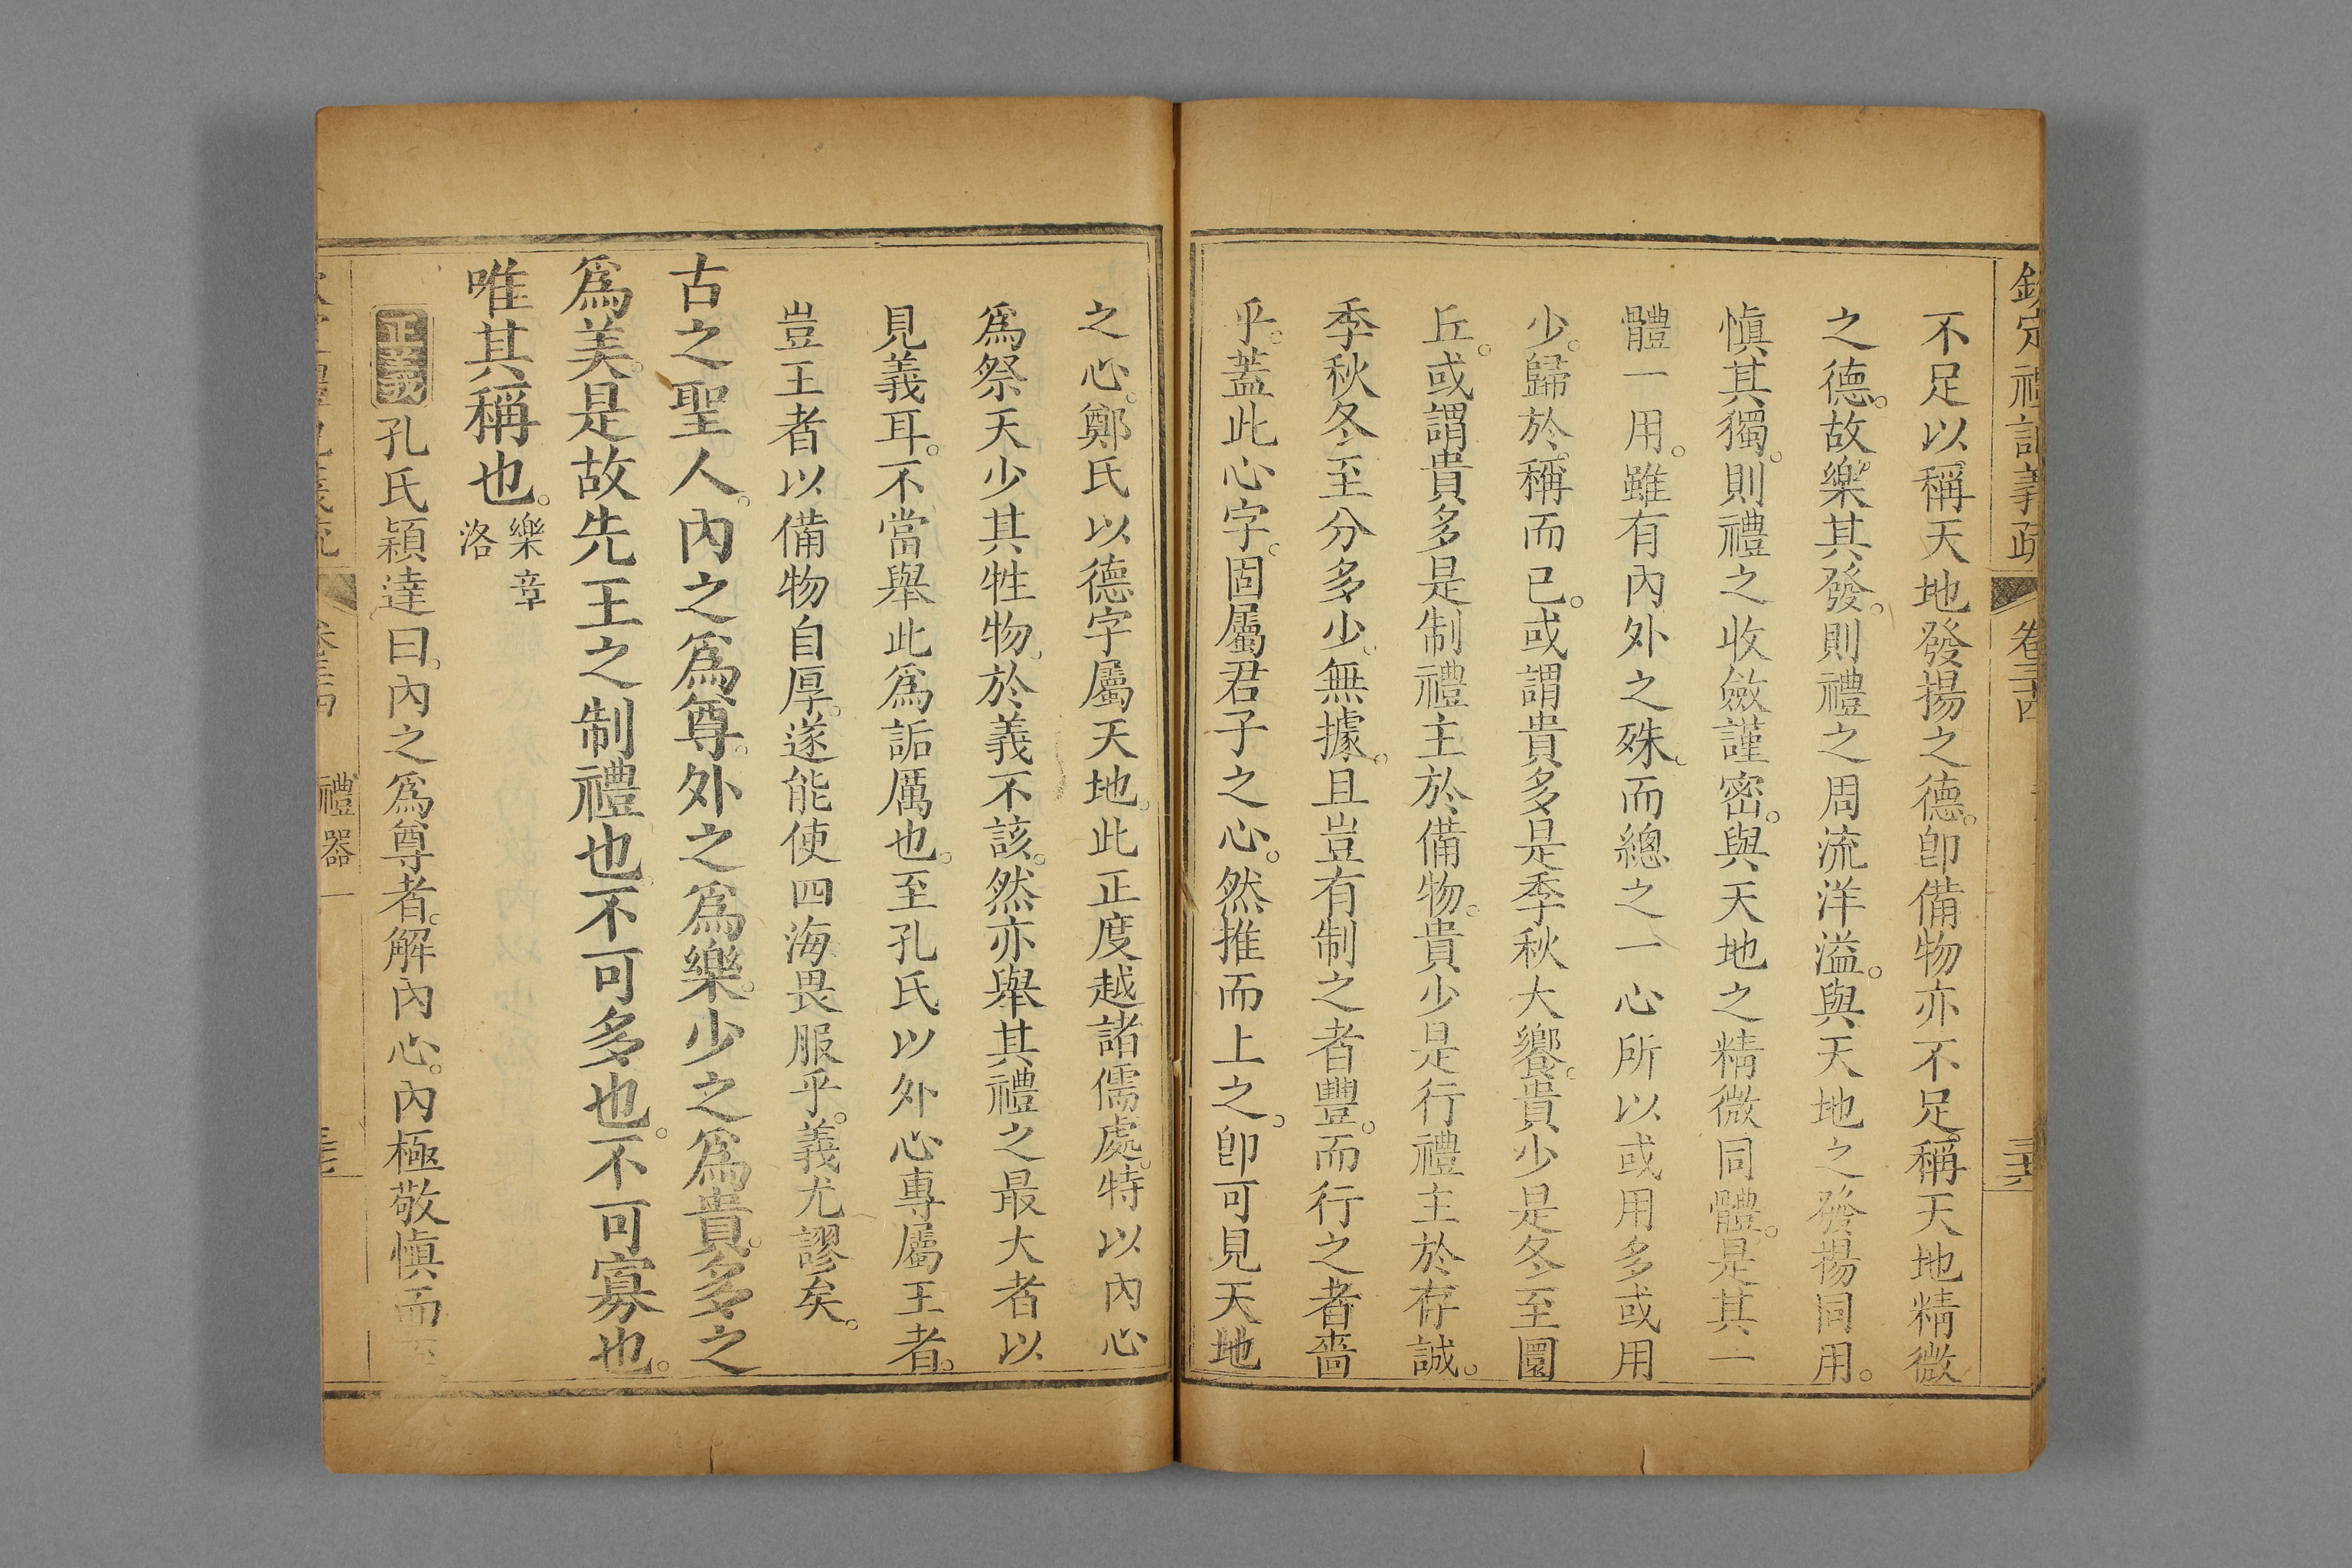 欽定禮記義疏 卷三十四
不足以稱天地發揚之德。卽備物亦不足稱天地精微
之德。故樂其發。則禮之周流洋溢。與天地之發揚同用。
慎其獨。則禮之收斂謹密。與天地之精微同體。是其一
體一用。雖有內外之殊。而總之一心所以或用多或用
少。歸於稱而已。或謂貴多是季秋大饗。貴少是冬至圜
丘。或謂貴多是制禮主於備物。貴少是行禮主於存誠。
季秋冬至分多少。無據。且豈有制之者豐。而行之者嗇
乎。蓋此心字。固屬君子之心。然推而上之。卽可見天地
之心。鄭氏以德字屬天地。此正度越諸儒處。特以內心
爲祭天少其牲物。於義不該。然亦舉其禮之最大者以
見義耳。不當舉此爲詬厲也。至孔氏以外心專屬王者。
豈王者以備物自厚。遂能使四海畏服乎。義尤謬矣。
古之聖人。內之爲尊。外之爲樂。少之爲貴。多之
爲美。是故先王之制禮也。不可多也。不可寡也。
唯其稱也。樂章
洛
正義 孔氏穎達曰。內之爲尊者。解內心。內極敬慎而
禮器一